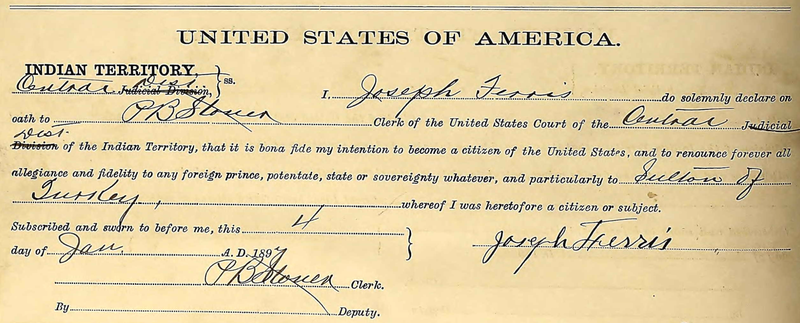 UNITED STATES OF AMERICA.
INDIAN TERRITORY.
Central Dist. Judicial Division, } ss. I, Joseph Ferris do solemnly declare on
oath to P B Stoner Clerk of the United States Court of the Central Judicial
Dist.
Division of the Indian Territory, that it is bona fide my intention to become a citizen of the United States, and to renounce forever all
allegiance and fidelity to any foreign prince, potentate, state or sovereignty whatever, and particularly to Sultan of
Turkey, whereof I was heretofore a citizen or subject.
Subscribed and sworn to before me, this 4
day of Jan. A. D. 1897 } Joseph Ferris
P B Stoner Clerk.
By Deputy.